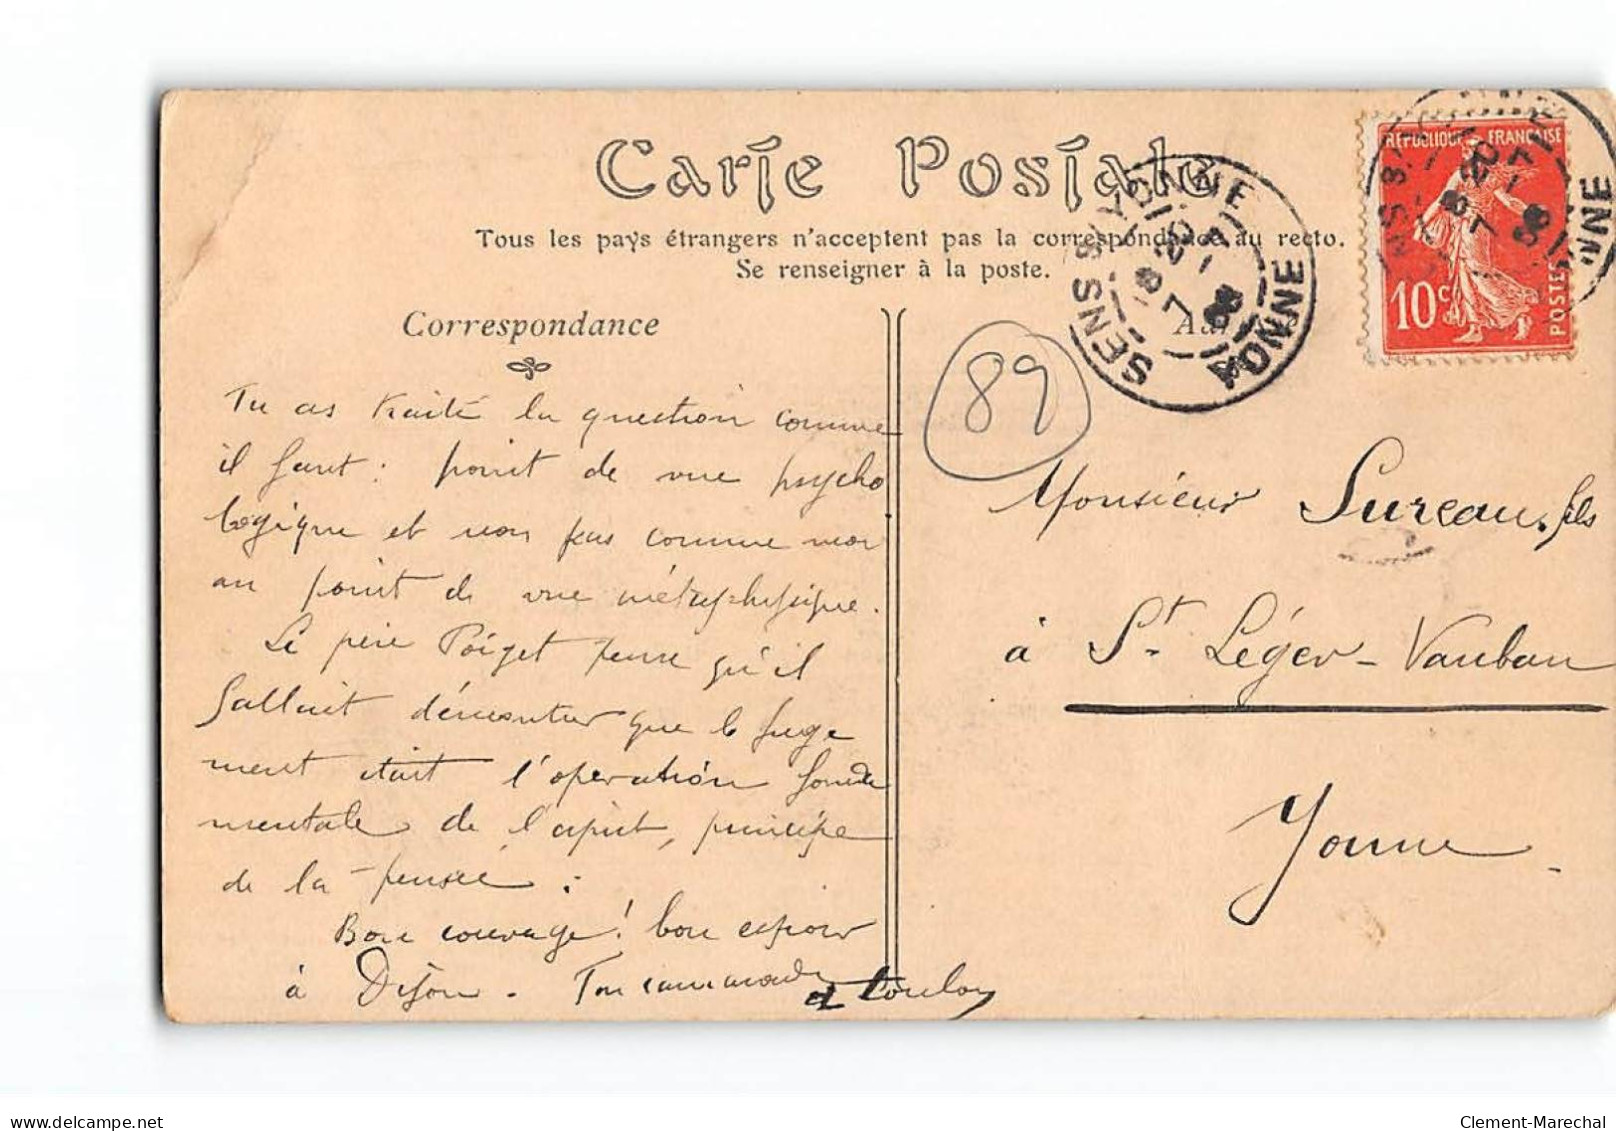 Carte Postale
Tous les pays étrangers n'acceptent pas la correspondance au recto.
Se renseigner à la poste.
Correspondance
Tu as traité la question comme
il faut : point de vue psycho
logique et non pas comme moi
au point de vue métaphysique.
Le père Poiget pense qu'il
fallait démontrer que le juge
ment était l'opération fonda
mentale de l'esprit, principe
de la pensée.
Bon courage ! bon espoir
à Dijon. Ton camarade
89
SENS S/YONNE
YONNE
REPUBLIQUE FRANÇAISE
10c
POSTES
Monsieur Sureau, fils
à St. Léger-Vauban
Yonne
Clement-Marechal